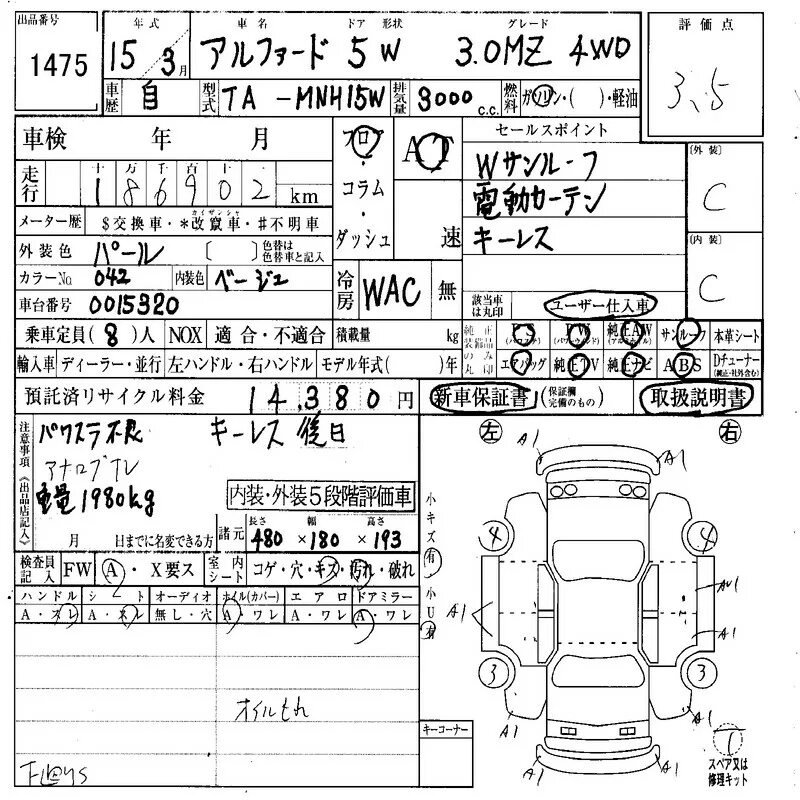 出品番号 年式 車名 ドア 形状 グレード 評価点
1475 15/3月 アルファード 5W 3.0MZ 4WD 3.5
車歴 自 型式 TA-MNH15W 排気量 3000 c.c. 燃料 ガソリン・( )・軽油
車検 年 月 フロア AT セールスポイント
走行 十 万 千 百 十
186902 km
・コラム・ダッシュ 速
Wサンルーフ
電動カーテン
キーレス
[外装] C
[内装] C
メーター歴 $交換車・*改竄車・#不明車
カイザンシャ
外装色 パール [ ] 色替は色替車と記入
カラーNo 042 内装色 ベージュ
冷房 WAC 無
該当車は丸印 ユーザー仕入車
車台番号 0015320
乗車定員(8)人 NOX 適合・不適合 積載量 kg
純正装備品のみ丸印 PS(パワステ) PW(パワーウィンド) 純正AW(アルミホイル) サンルーフ 本革シート
輸入車 ディーラー・並行 左ハンドル・右ハンドル モデル年式( )年
エアバッグ 純正TV 純正ナビ ABS Dチューナー(純正・社外含む)
預託済リサイクル料金 14,380円 新車保証書(保証欄完備のもの) 取扱説明書
注意事項《出品店記入》
パワステ不良 キーレス後日
アナログTV
重量1980kg
内装・外装5段階評価車
月 日までに名変できる方
諸元 長さ 幅 高さ
480×180×193
検査員記入 FW A・X要ス 室内シート コゲ・穴・キズ・汚れ・破れ
ハンドル シート オーディオ ホイル(カバー) エアロ ドアミラー
A・スレ A・スレ 無し・穴 A・ワレ A・ワレ A・ワレ
オイルもれ
小キズ有 小U有
左 右
A1 A1
4 4
A1
A1 A1
3 3
A1 A1
A1 A1
キーコーナー
T
スペア又は修理キット